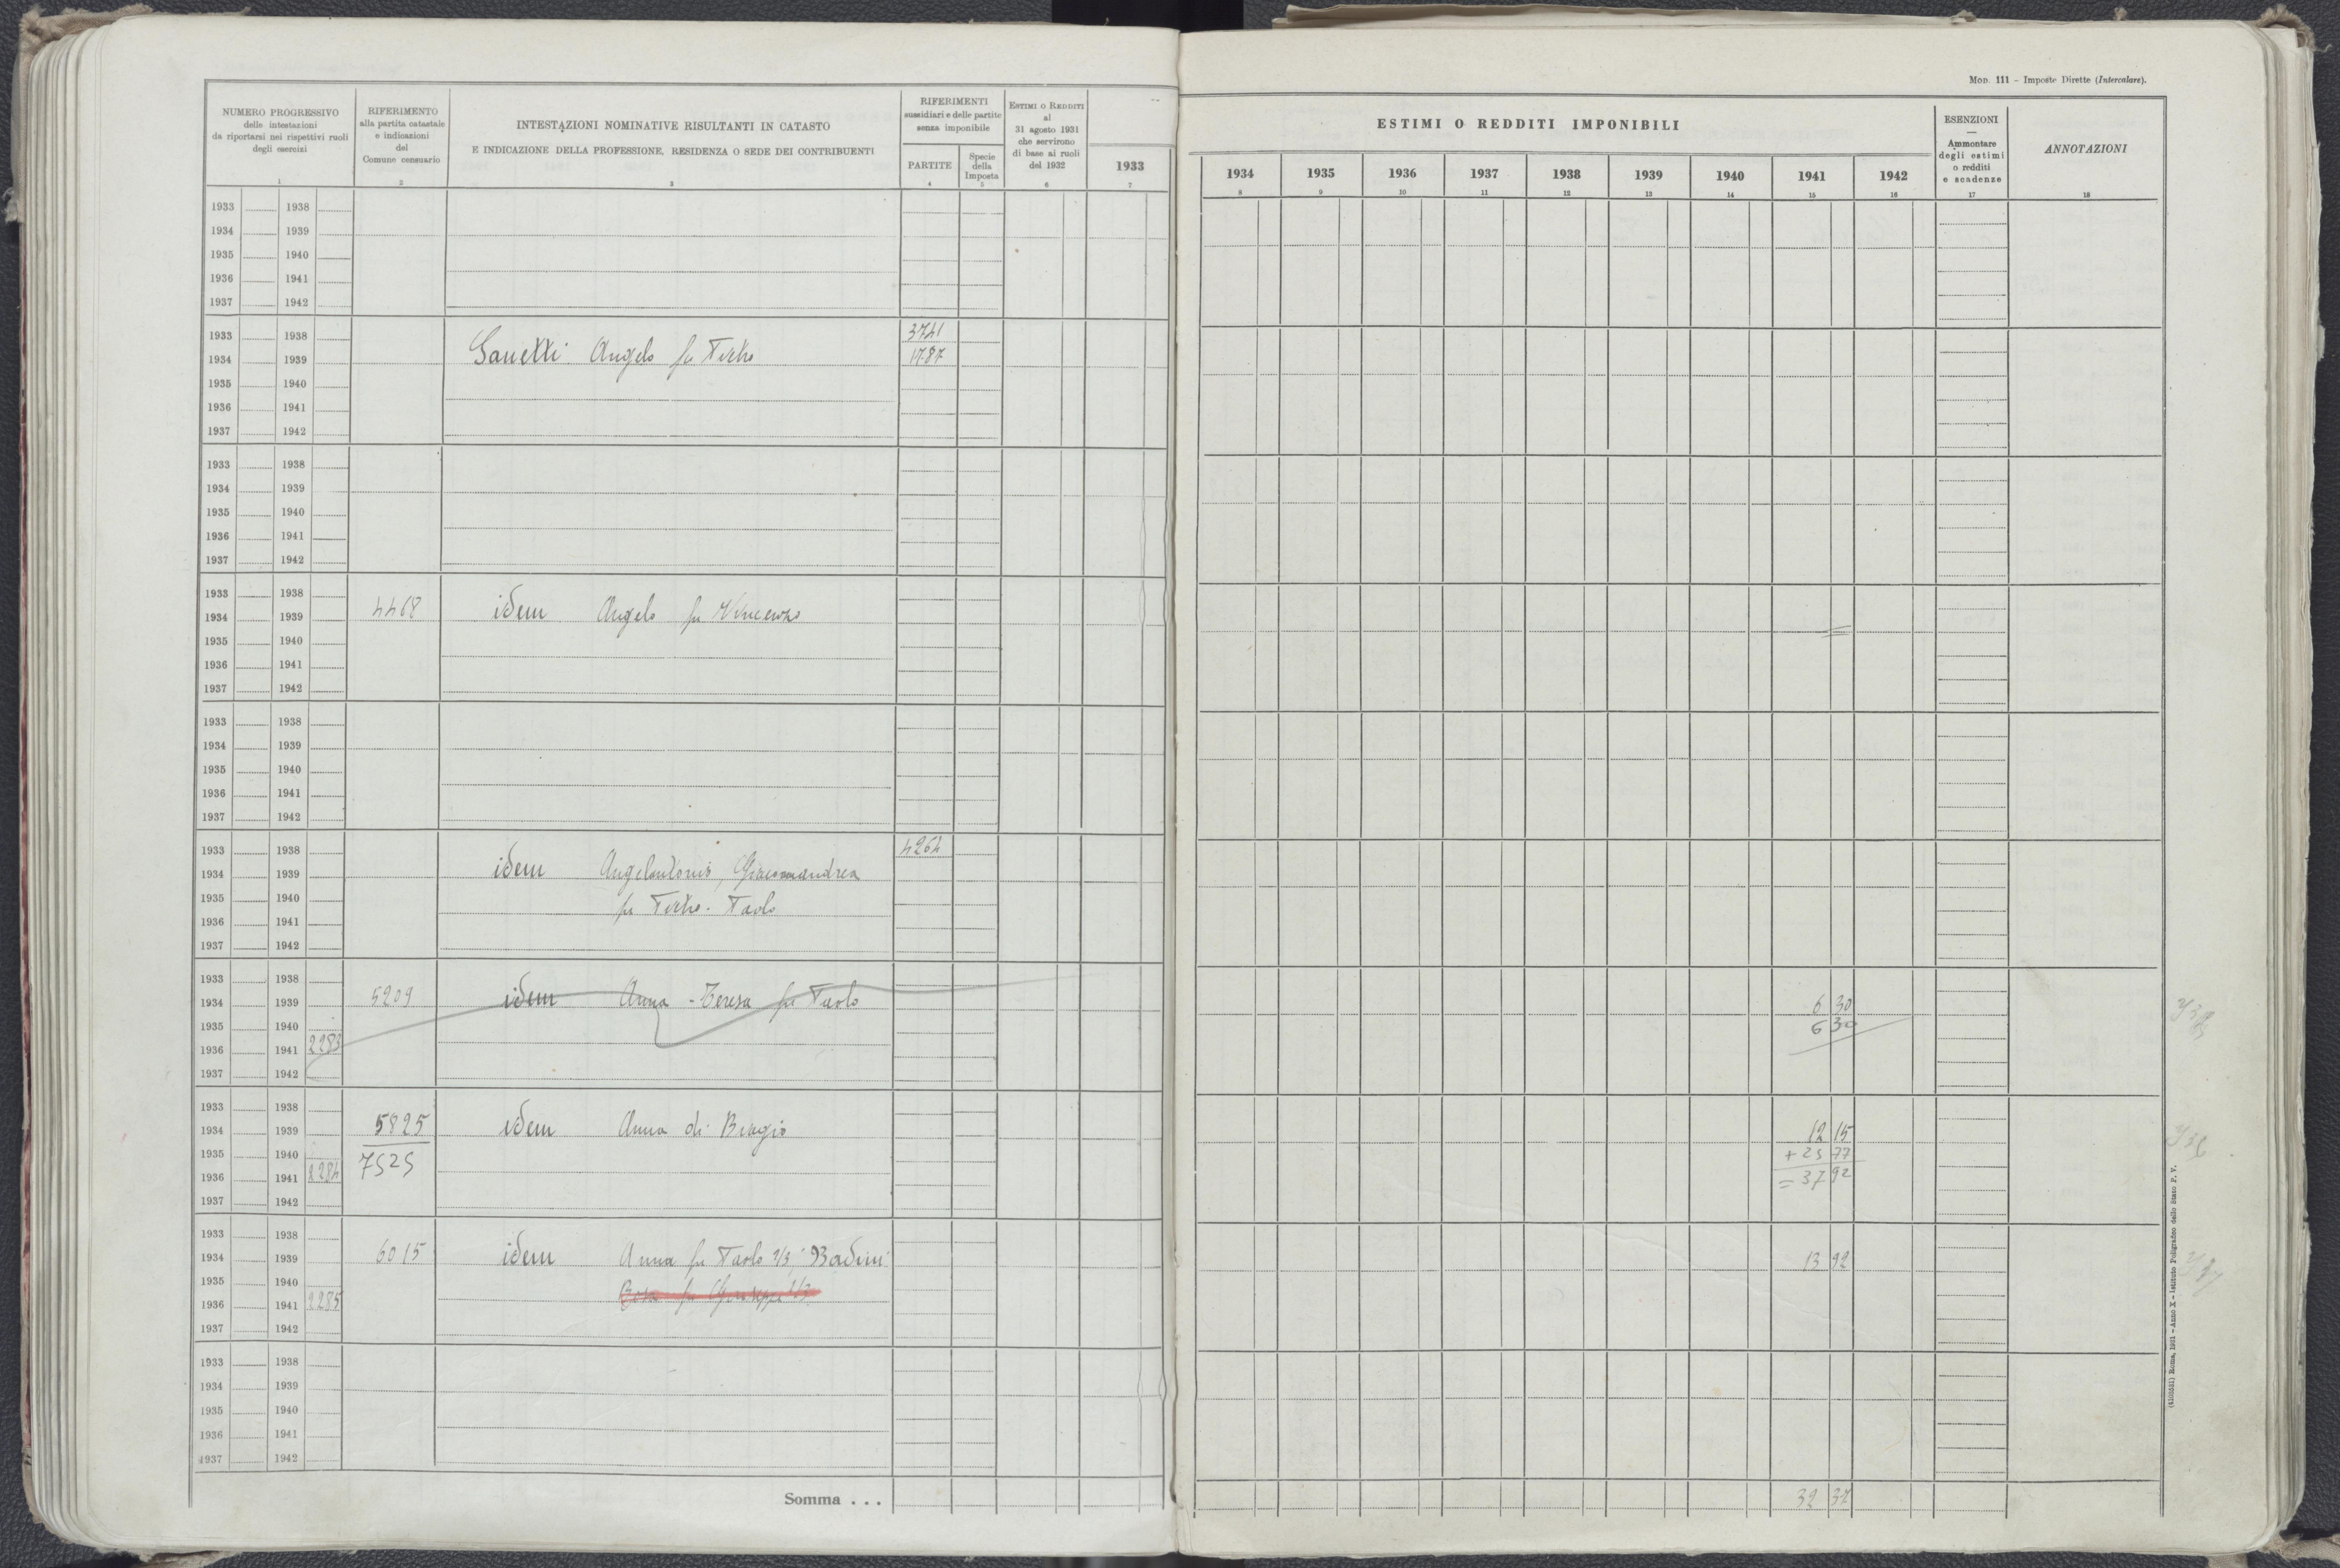 MOD. 111 – Imposte Dirette (Intercalare).
NUMERO PROGRESSIVO
delle intestazioni
da riportarsi nei rispettivi ruoli
degli esercizi
1
RIFERIMENTO
alla partita catastale
e indicazioni
del
Comune censuario
2
INTESTAZIONI NOMINATIVE RISULTANTI IN CATASTO
E INDICAZIONE DELLA PROFESSIONE, RESIDENZA O SEDE DEI CONTRIBUENTI
3
RIFERIMENTI
sussidiari e delle partite
senza imponibile
PARTITE
4
Specie
della
Imposta
5
ESTIMI O REDDITI
al
31 agosto 1931
che servirono
di base ai ruoli
del 1932
6
1933
7
ESTIMI O REDDITI IMPONIBILI
1934 1935 1936 1937 1938 1939 1940 1941 1942
8 9 10 11 12 13 14 15 16
ESENZIONI
—
Ammontare
degli estimi
o redditi
e scadenze
17
ANNOTAZIONI
18
1933 1938
1934 1939
1935 1940
1936 1941
1937 1942
1933 1938 3741
1934 1939 Angelo fu Pietro 1787
1935 1940
1936 1941
1937 1942
1933 1938
1934 1939
1935 1940
1936 1941
1937 1942
1933 1938
1934 1939 4468 idem Angelo fu Vincenzo
1935 1940
1936 1941
1937 1942
1933 1938
1934 1939
1935 1940
1936 1941
1937 1942
1933 1938 4264
1934 1939 idem Angelantonio, Giacomandrea
1935 1940 fu Pietro-Paolo
1936 1941
1937 1942
1933 1938
1934 1939 5209 idem Anna-Teresa fu Paolo 6 30
1935 1940 6 30
1936 1941 2283
1937 1942
1933 1938
1934 1939 5825 idem Anna di Biagio 12 15
1935 1940 7525 + 25 77
1936 1941 2284 = 37 92
1937 1942
1933 1938
1934 1939 6015 idem Anna fu Paolo 2/3; Badini 13 92
1935 1940 Rosa fu Giuseppe 1/3
1936 1941 2285
1937 1942
1933 1938
1934 1939
1935 1940
1936 1941
1937 1942
Somma . . . 32 37
(4103551) Roma, 1931 – Anno X – Istituto Poligrafico dello Stato P. V.